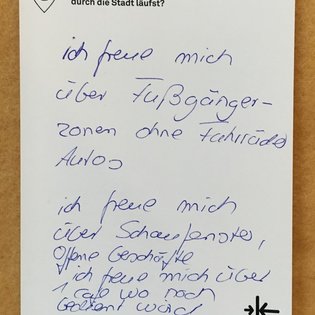 durch die Stadt läufst?
ich freue mich
über Fußgänger-
zonen ohne Fahrräder
Autos
ich freue mich
über Schaufenster,
offene Geschäfte
ich freue mich über
1 cafe wo noch
bedient wird